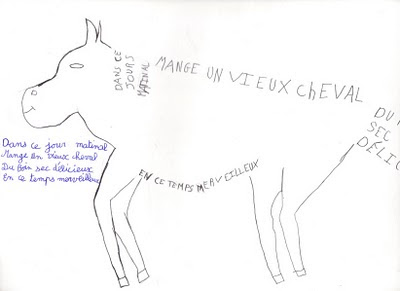 DANS CE
JOURS
MATINAL
MANGE UN VIEUX ChEVAL
DU
SEC
DÉLIC
EN CE TEMPS MERVEILLEUX
Dans ce jour matinal
Mange Un vieux cheval
Du foin sec délicieux
En ce temps merveilleux